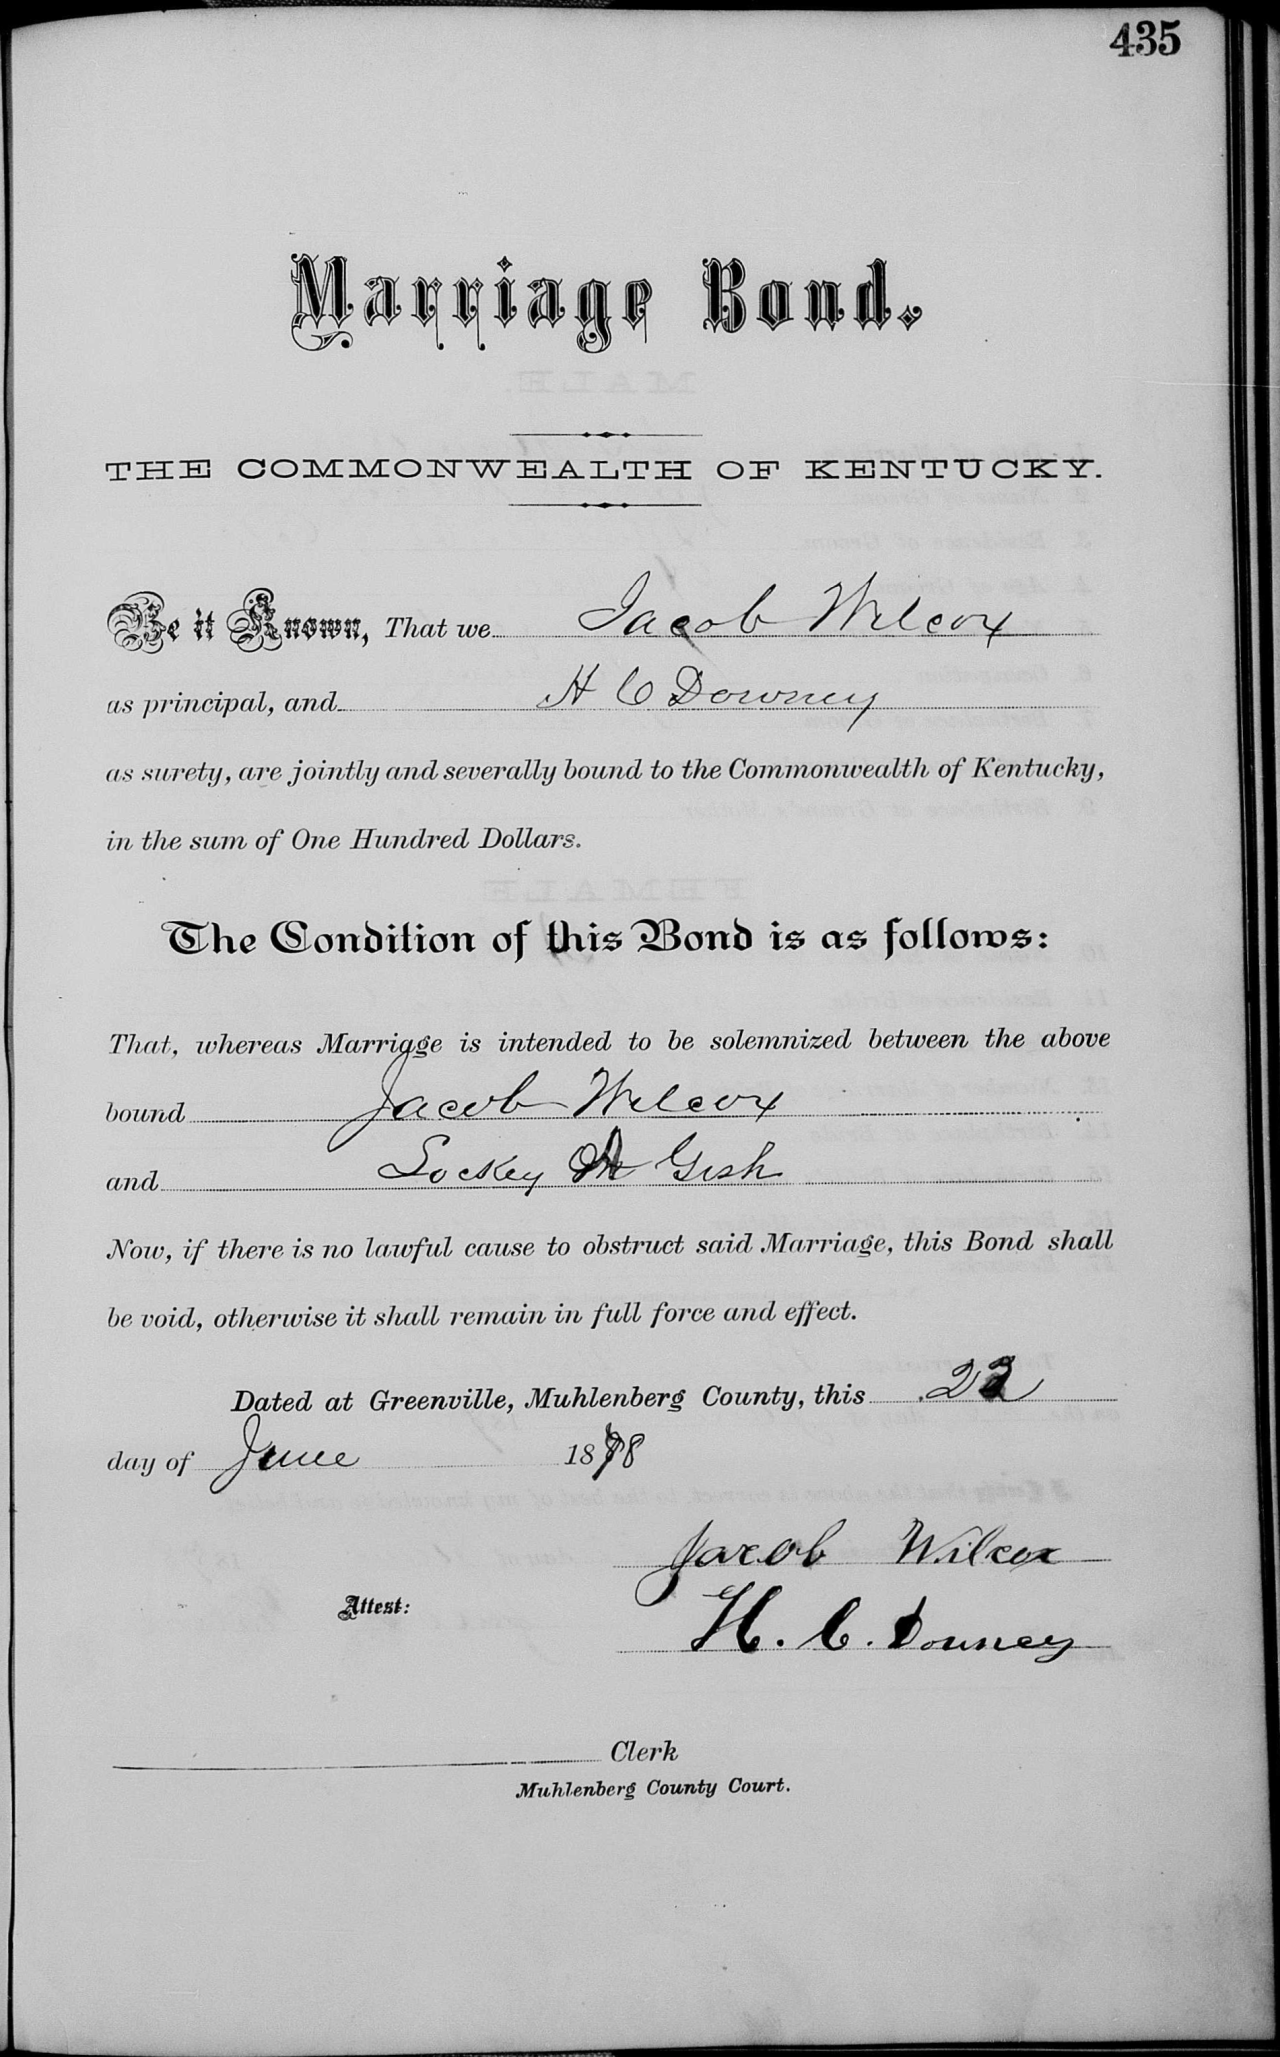 435
Marriage Bond.
THE COMMONWEALTH OF KENTUCKY.
Be it Known, That we Jacob Wilcox
as principal, and H C Downey
as surety, are jointly and severally bound to the Commonwealth of Kentucky,
in the sum of One Hundred Dollars.
The Condition of this Bond is as follows:
That, whereas Marriage is intended to be solemnized between the above
bound Jacob Wilcox
and Lockey A Gish
Now, if there is no lawful cause to obstruct said Marriage, this Bond shall
be void, otherwise it shall remain in full force and effect.
Dated at Greenville, Muhlenberg County, this 22
day of June 1888
Jacob Wilcox
Attest:
H. C. Downey
Clerk
Muhlenberg County Court.